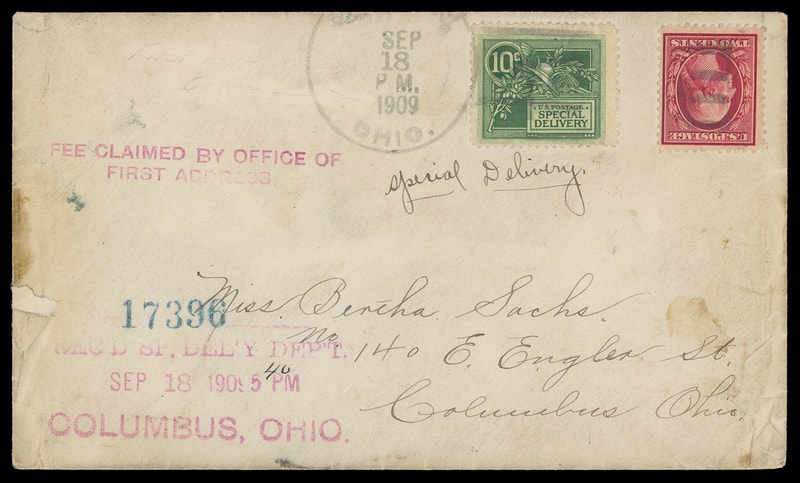 SEP
18
P M.
1909
OHIO.
10c
U.S. POSTAGE
SPECIAL
DELIVERY
TWO CENTS
U.S. POSTAGE
FEE CLAIMED BY OFFICE OF
FIRST ADDRESS.
Special Delivery.
17396
Miss. Bertha Sachs.
No. 140 E. Engler St.
Columbus Ohio.
REC'D SP. DEL'Y DEP'T.
SEP 18 1909 5 40 PM
COLUMBUS, OHIO.